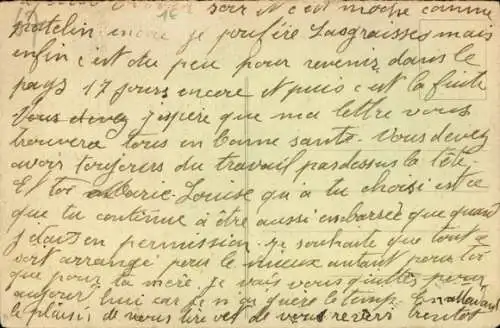 soir et c'est moche comme
Patelin encore je préfère Lasgraisses mais
enfin c'est du peu pour revenir dans le
pays 17 jours encore et puis c'est la fuite
Vous devez j'espère que ma lettre vous
trouvera tous en bonne santé. Vous devez
avoir toujours du travail pardessus la tête.
Et toi Marie-Louise qu'a tu choisi est ce
que tu continue à être aussi embarsée que quand
j'étais en permission. Je souhaite que tout
sort arrangé pour le mieux autant pour toi
que pour ta mère. Je vais vous quitter pour
aujour'hui car je n'ai guère le temps. En attendant
le plaisir de vous lire et de vous revoir bientôt